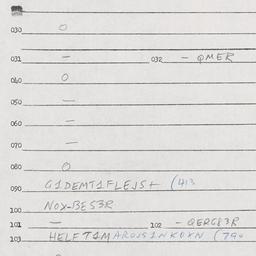 030 O
031 — 032 - QMER
040 O
050 —
060 —
070 —
080 O
090 G1DEMT1FLEJS+ (413
100 NOX-BES3R
101 — 102 - QERG83R
103 HELFT4M AROJS1NKOXN (790